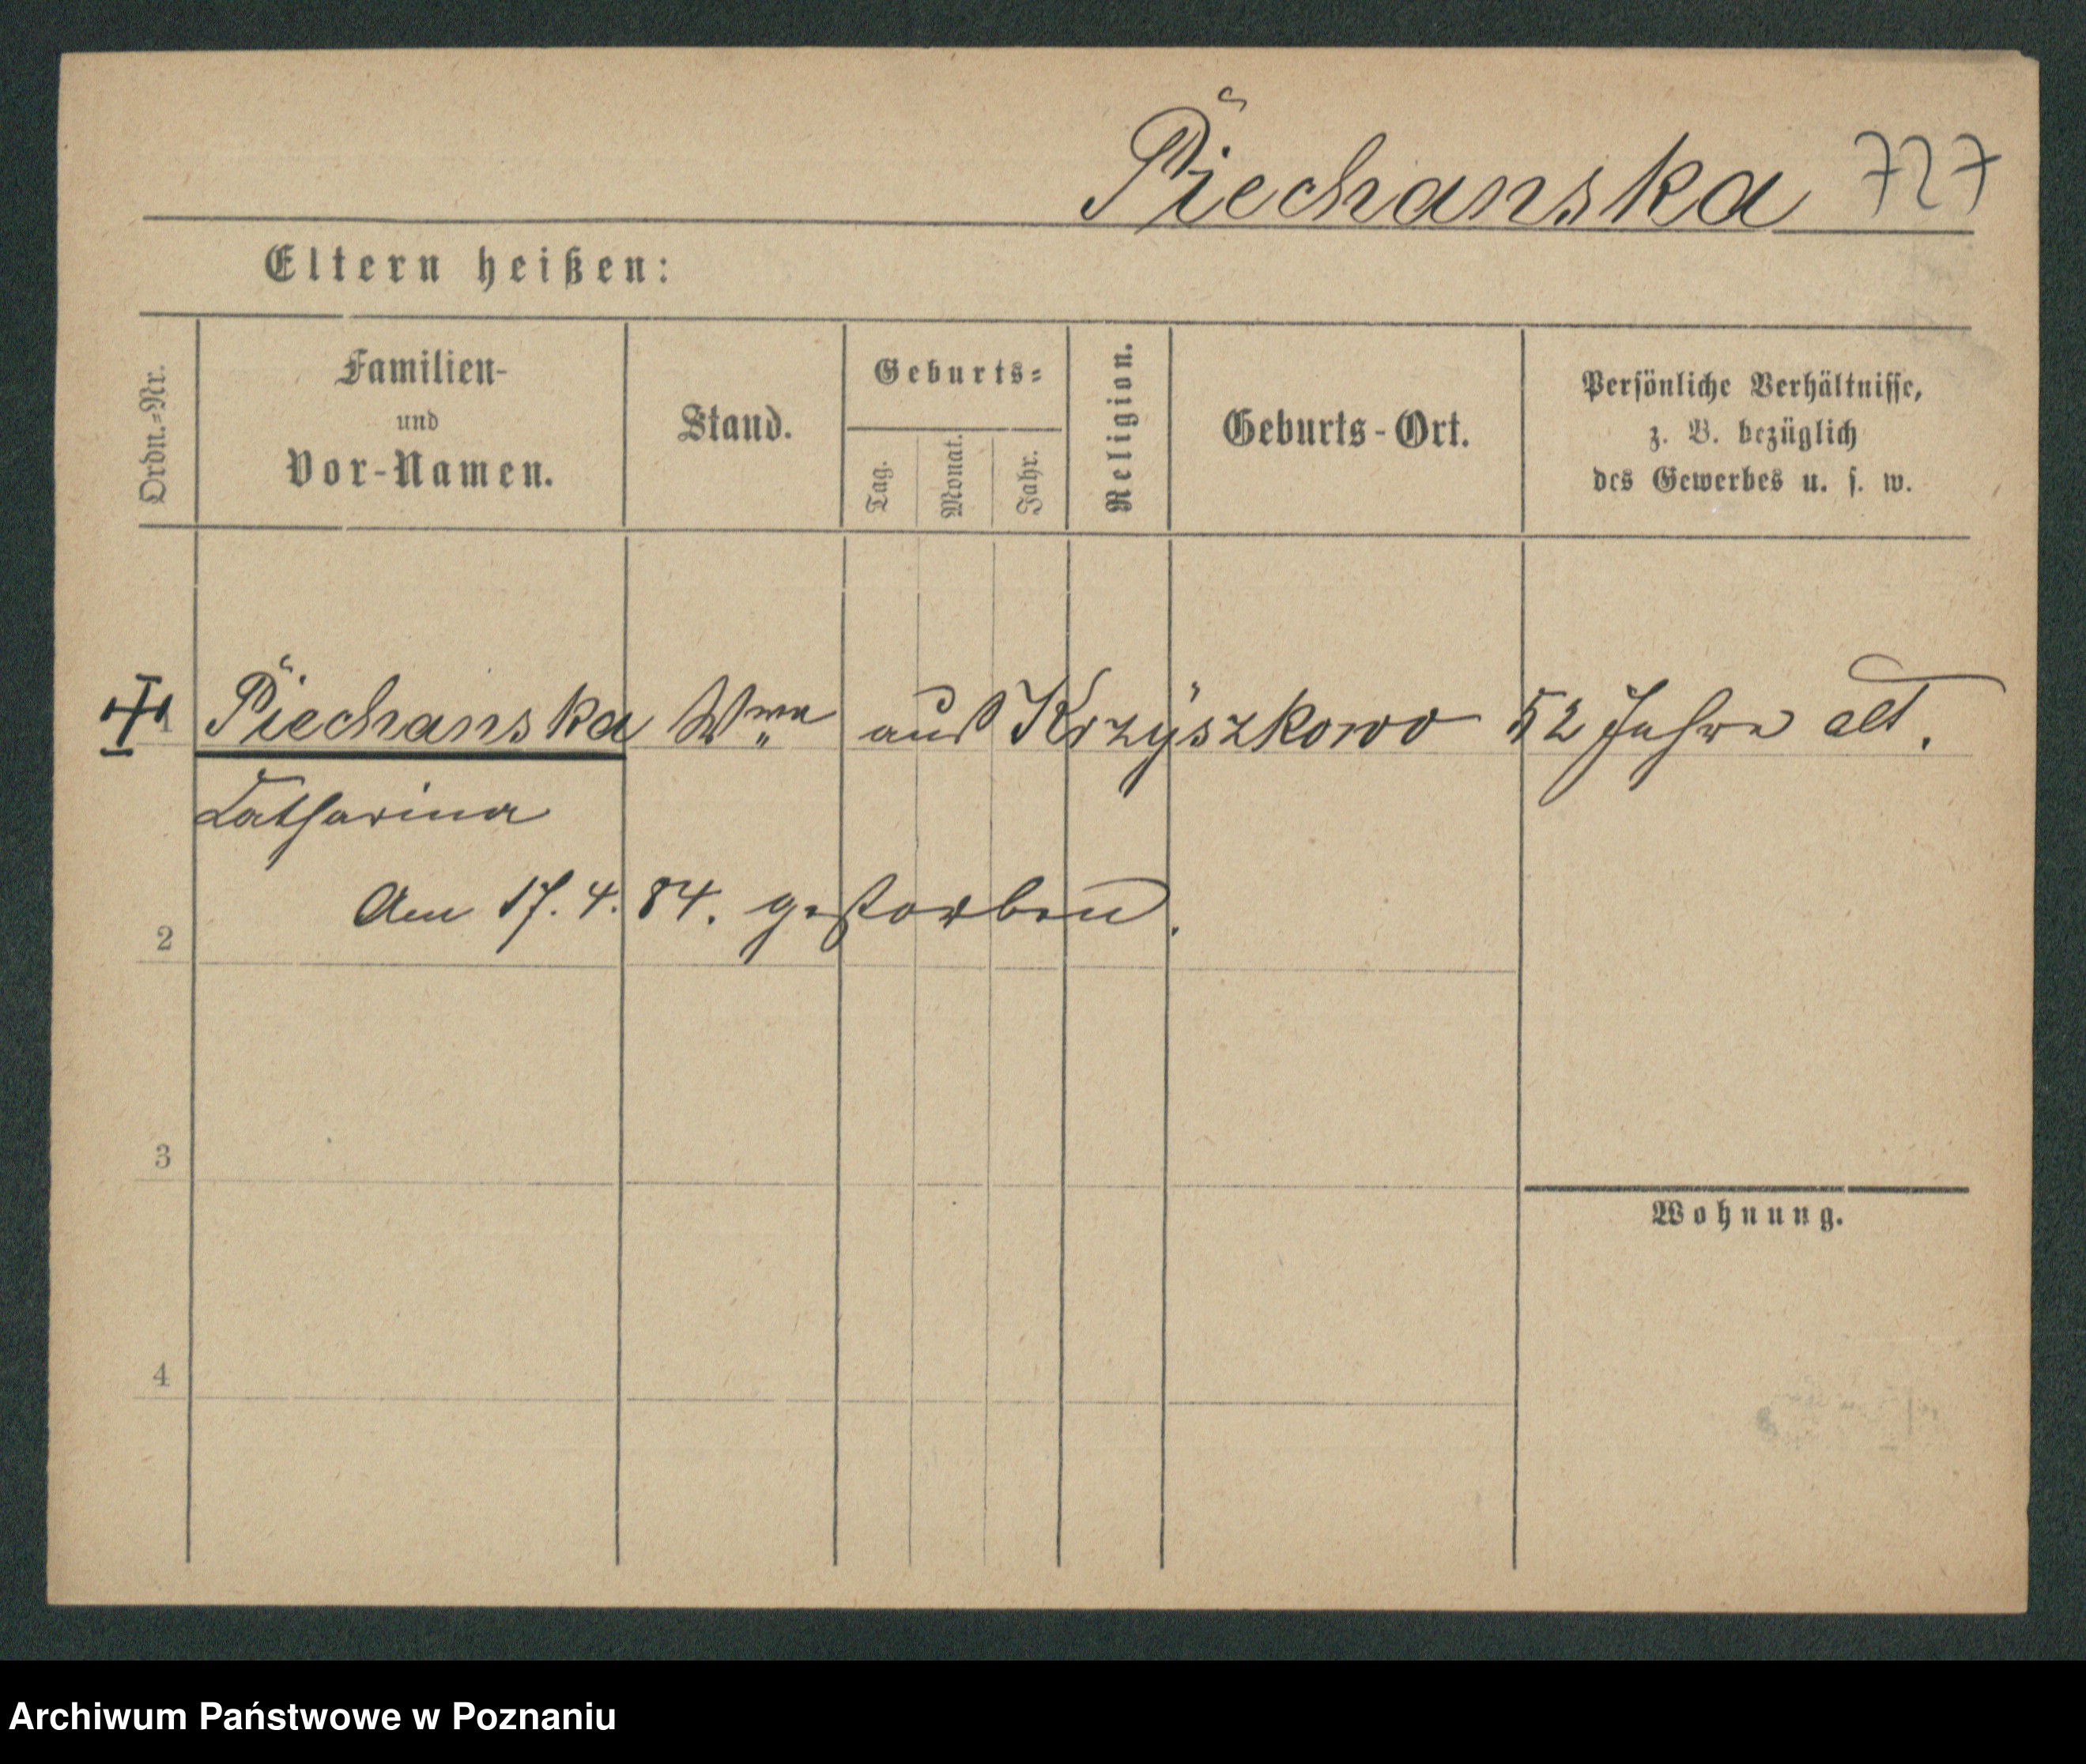 Piechanska 727
Eltern heißen:
Ordn.=Nr.
Familien-
und
Vor-Namen.
Stand.
Geburts=
Tag.
Monat.
Jahr.
Religion.
Geburts-Ort.
Persönliche Verhältnisse,
z. B. bezüglich
des Gewerbes u. s. w.
1 Piechanska Wwe aus Krzyszkowo 52 Jahre alt.
Catharina
Am 17. 4. 84. gestorben.
2
3
Wohnung.
4
Archiwum Państwowe w Poznaniu